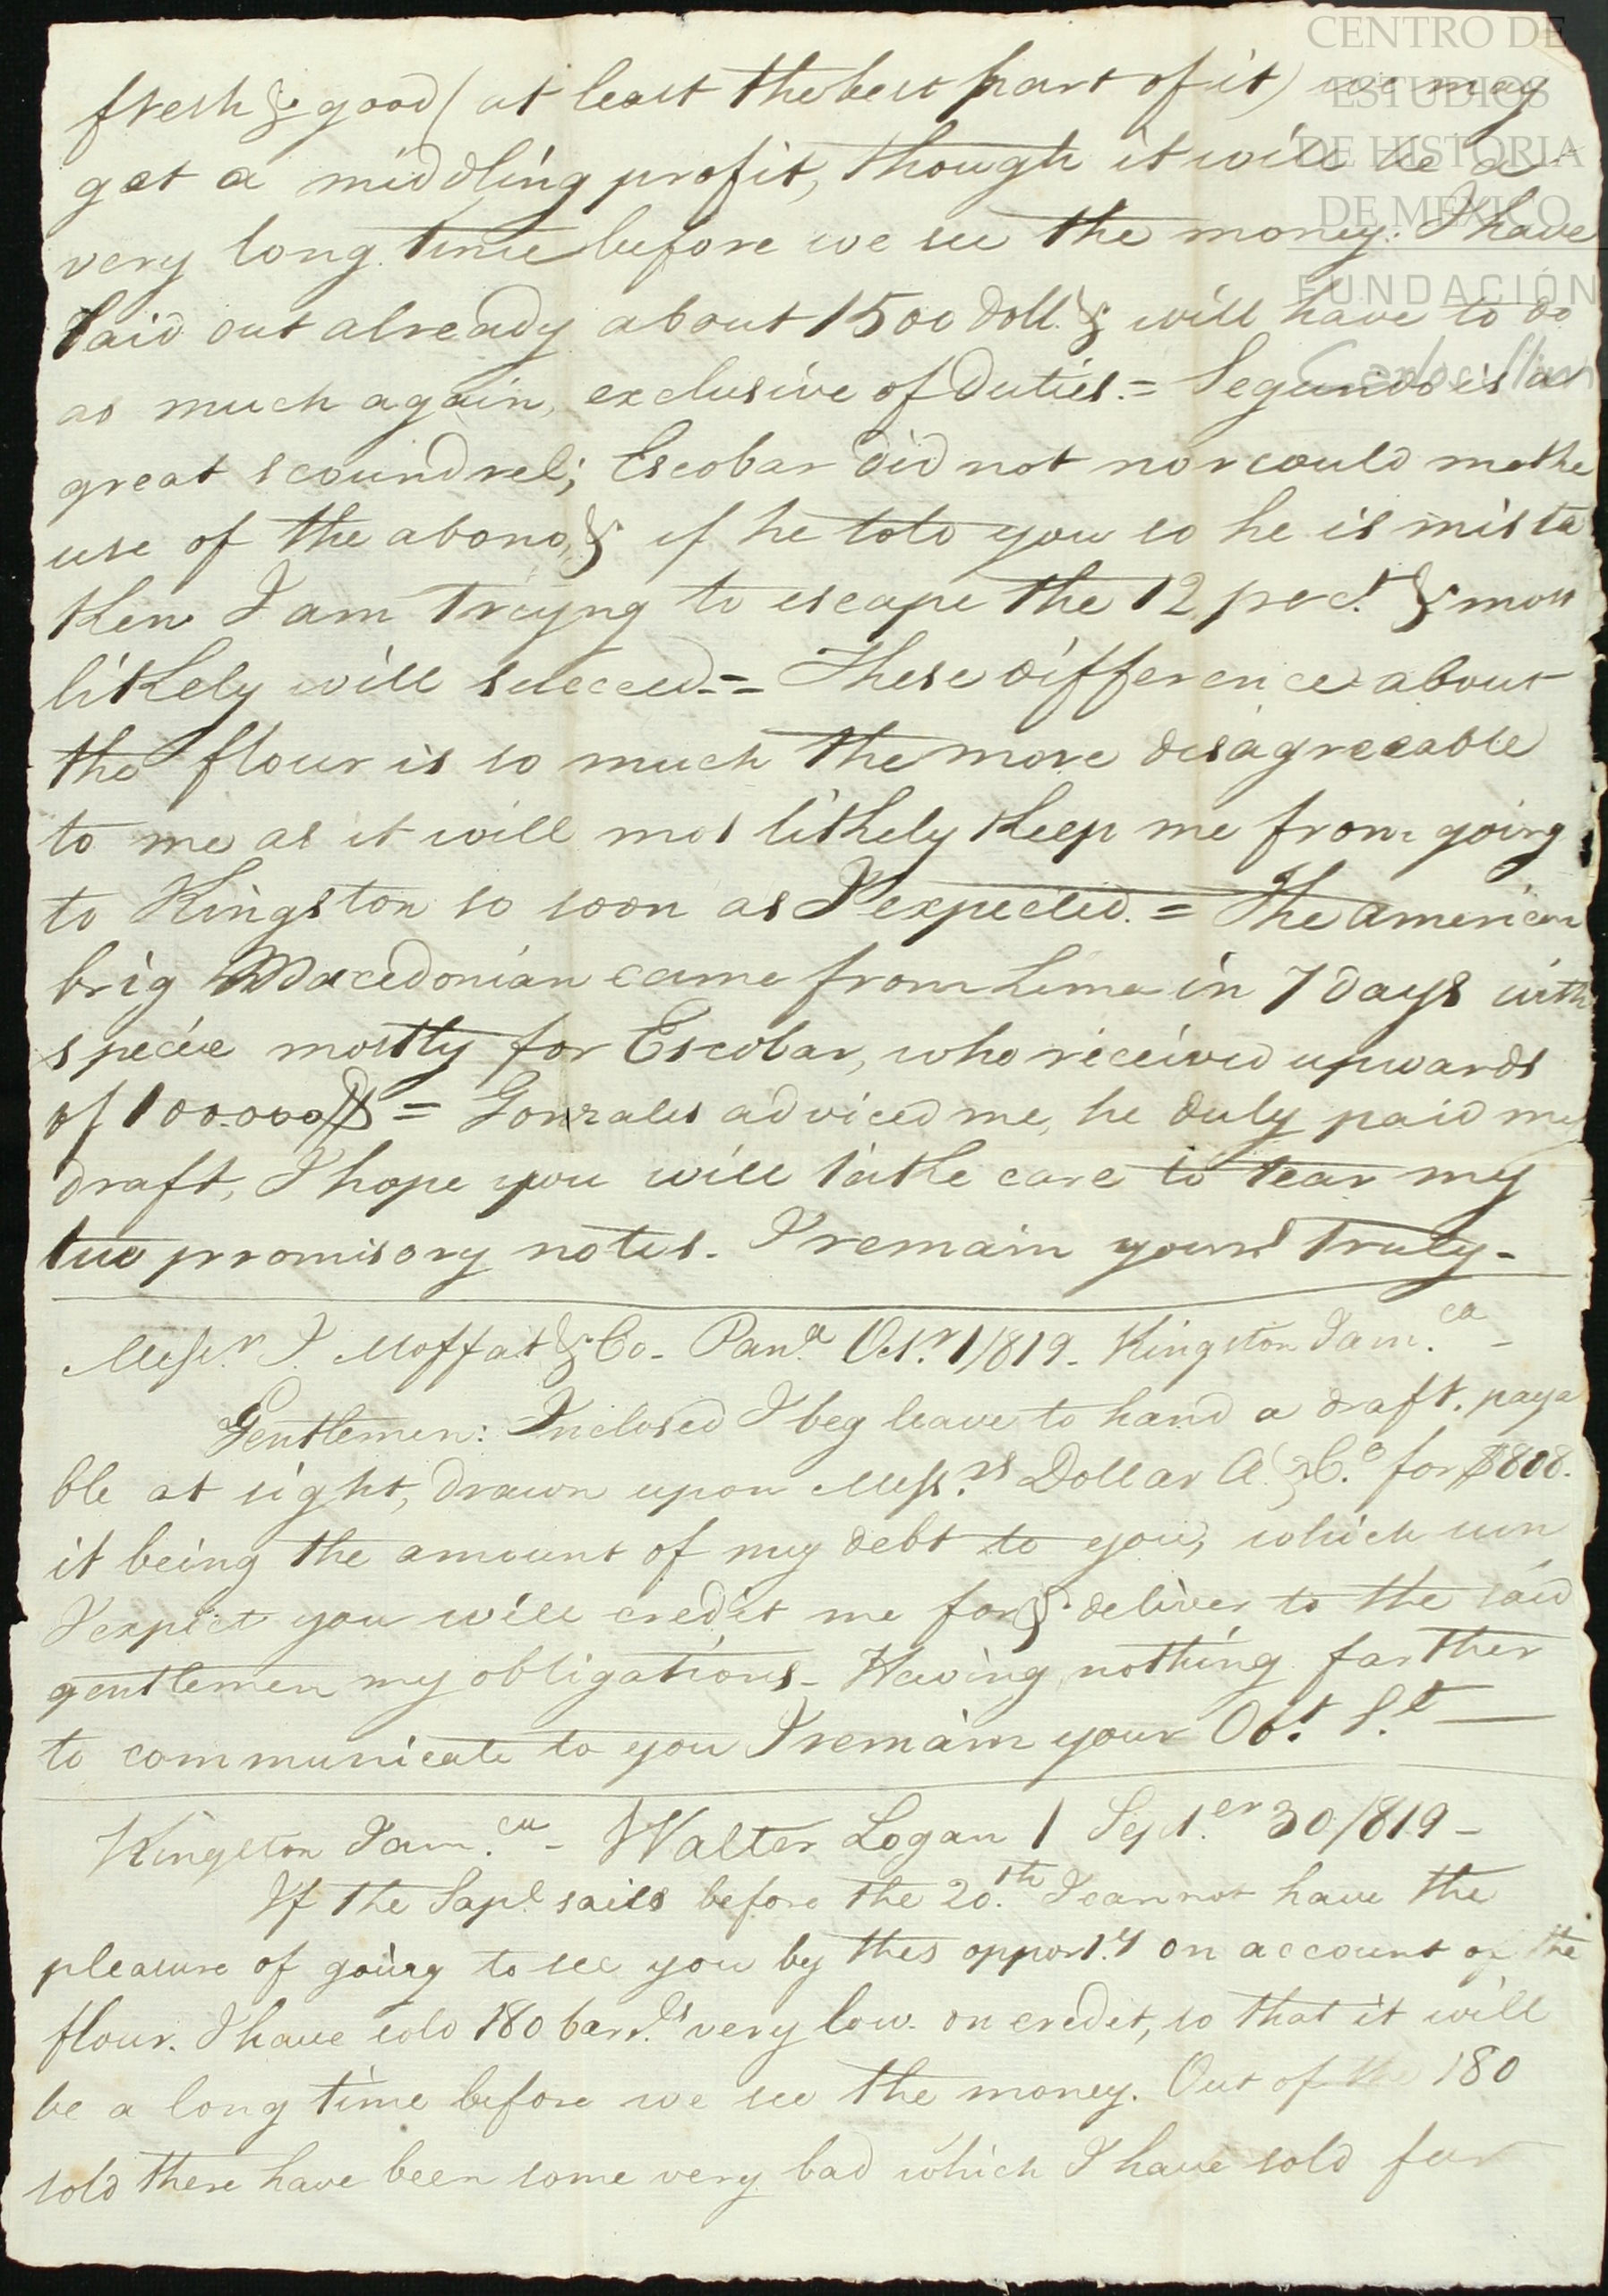 CENTRO DE
ESTUDIOS
DE HISTORIA
DE MÉXICO
FUNDACIÓN
Carlos Slim
fresh & good (at least the best part of it) we may
get a middling profit, though it will be a
very long time before we see the money. I have
laid out already about 1500 doll. & will have to do
as much again, exclusive of duties. = Segundo is a
great scoundrel; Escobar did not nor could mathe
use of the abono, & if he told you so he is mista
then I am trayng to escape the 12 per ct. & most
lithely will succeed. = These difference about
the flour is so much the more disagreeable
to me as it will mos lithely theep me from going
to Kingston so soon as I expected. = The american
brig Macedonian came from Lima in 7 days with
specie mostly for Escobar, who received upwards
of 100.000$ = Gonzales adviced me, he duly paid my
draft, I hope you will tathe care to tear my
two promisory notes. I remain yours truly -
Messrs. J. Moffat & Co - Pana. Octr. 1/819 - Kingston Jam.ca -
Gentlemen: Inclosed I beg leave to hand a draft, paya
ble at sight, drawn upon Messrs. Dollar A. & Co. for $808.
it being the amount of my debt to you, which sum
I expect you will credit me for & deliver to the said
gentlemen my obligations - Having nothing farther
to communicate to you I remain your Obt. St. —
Kingston Jam.ca - Walter Logan / Sept.er 30/819 -
If the Sapl. sails before the 20.th I cannot have the
pleasure of going to see you by thes opport.y on account of the
flour. I have sold 180 barr.ls very low on credit, so that it will
be a long time before we see the money. Out of the 180
sold there have been some very bad which I have sold for